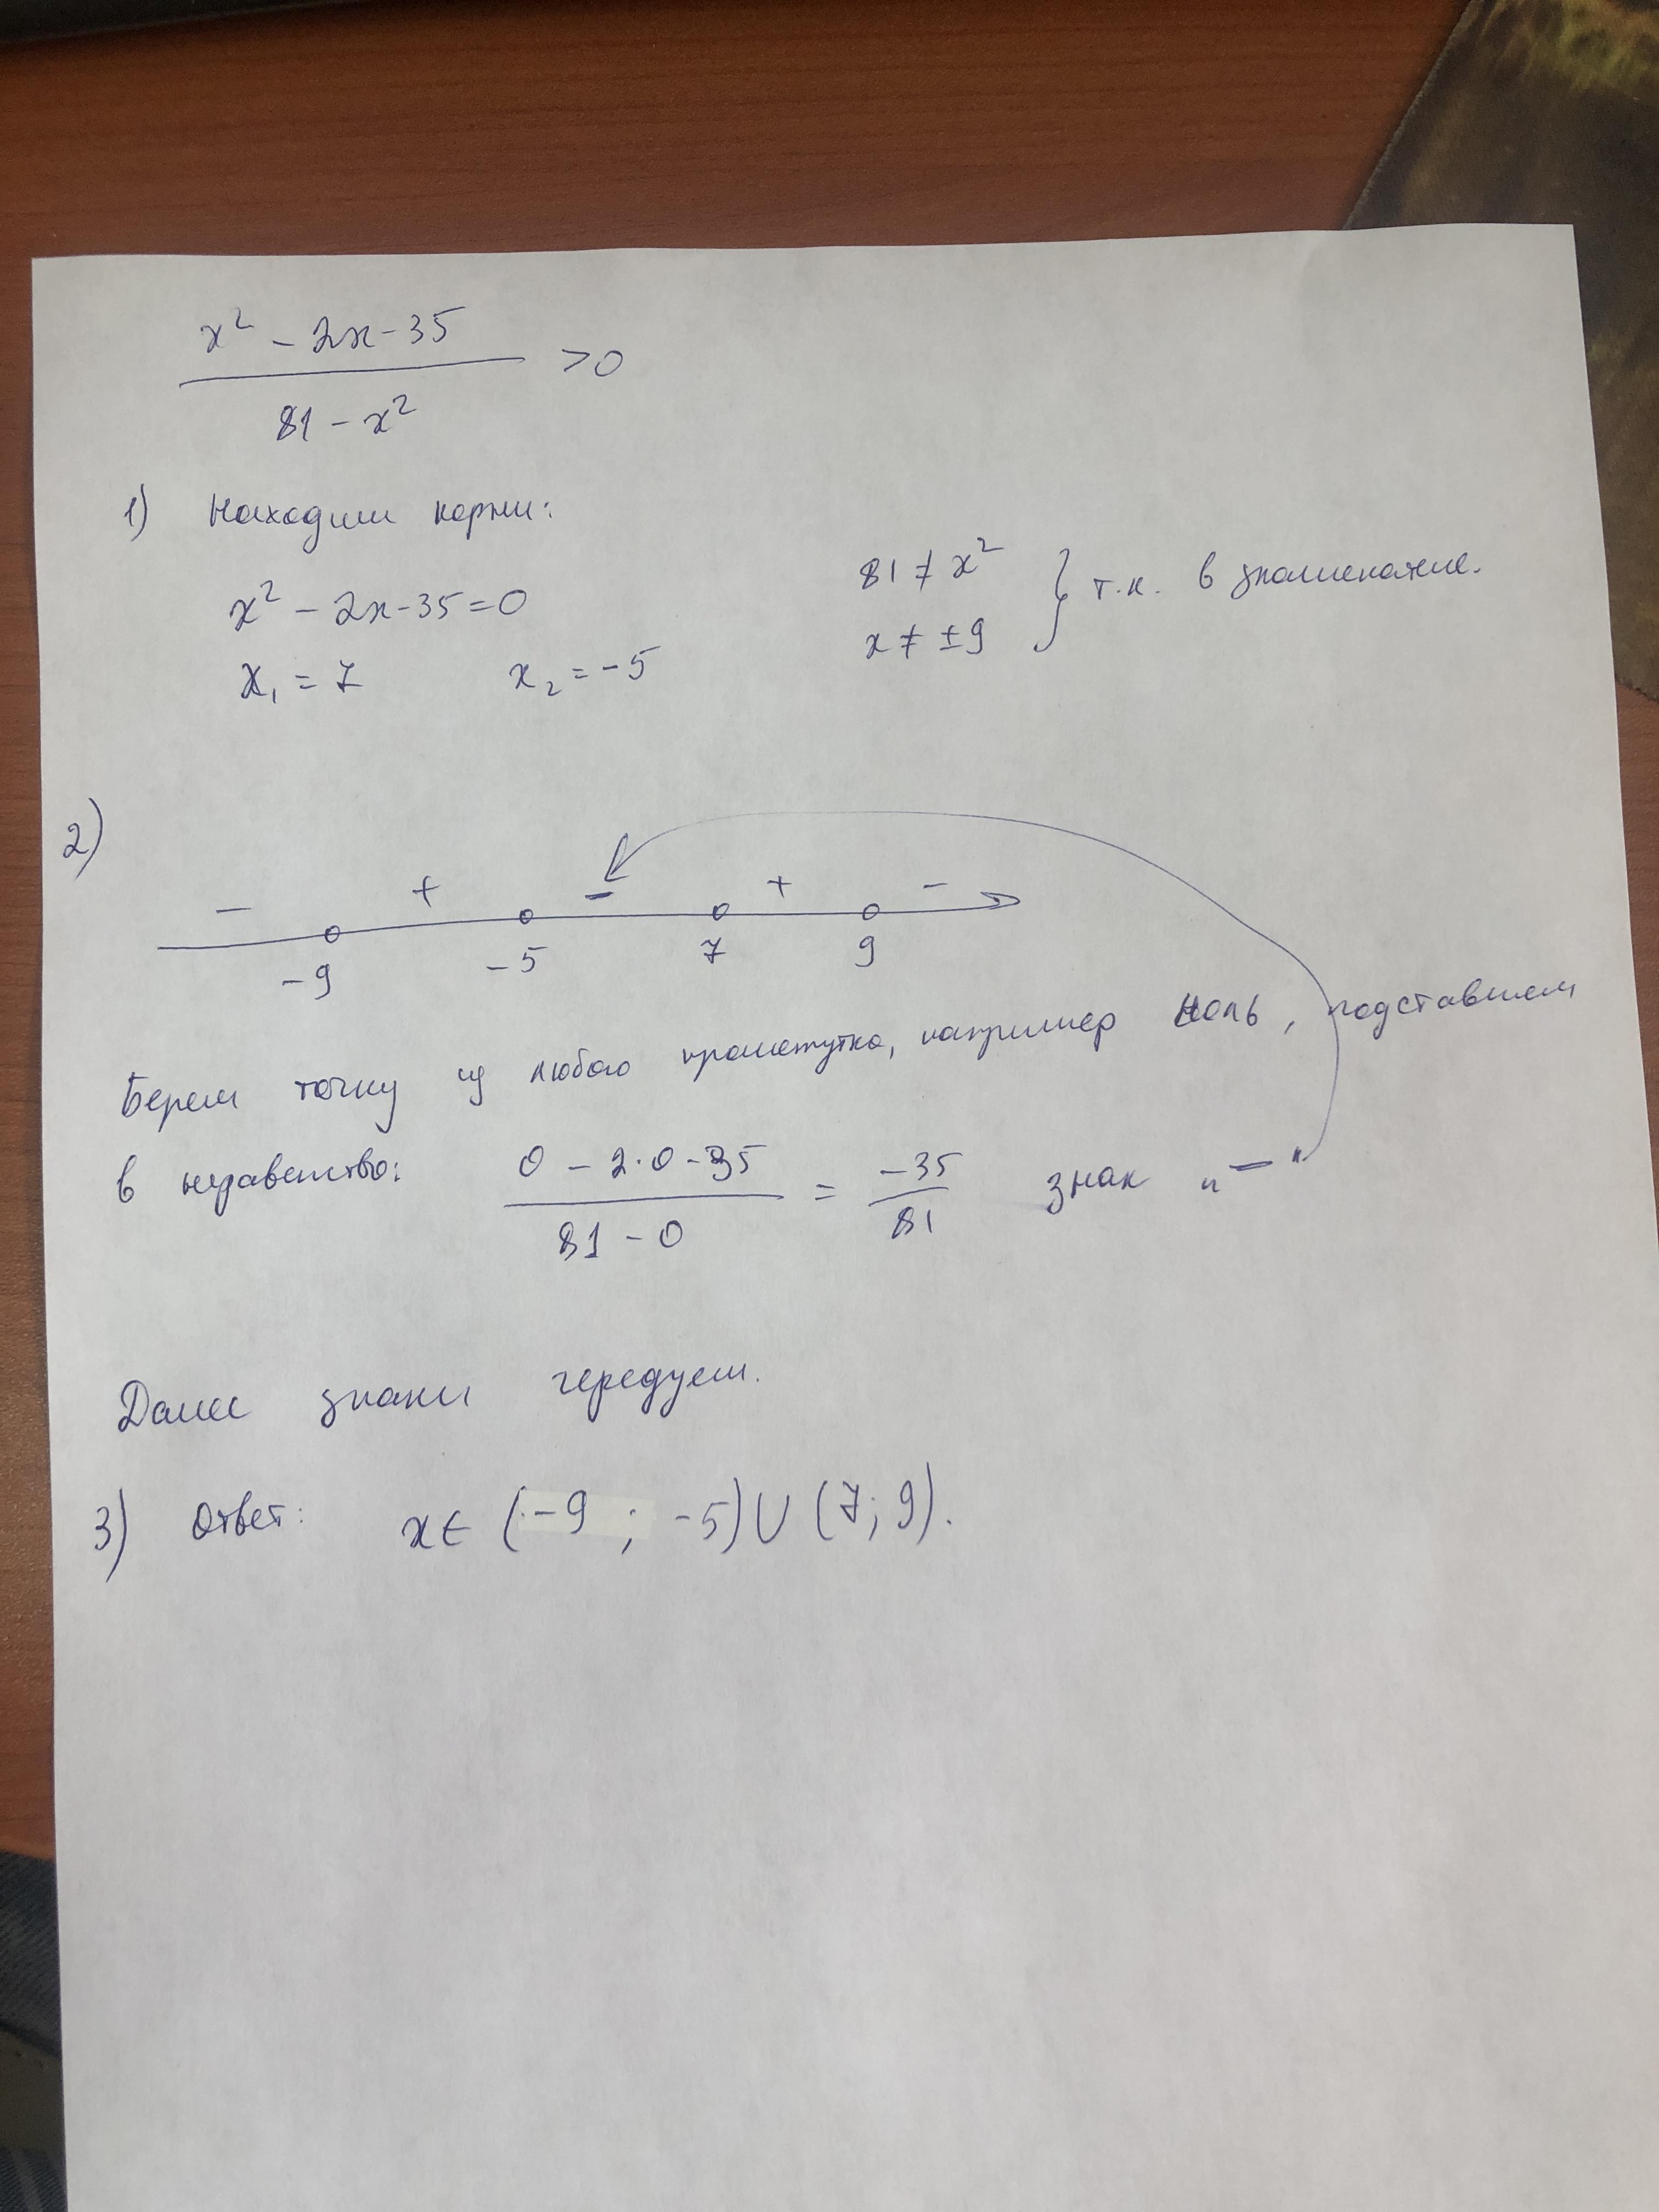 x² - 2x - 35
81 - x²
>0
1) Находим корни:
x² - 2x - 35 = 0
x₁ = 7 x₂ = -5
81 ≠ x²
x ≠ ±9
} т.к. в знаменателе.
2)
- + - + -
-9 -5 7 9
Берем точку из любого промежутка, например ноль, подставляем
в неравенство: 0 - 2·0 - 35 / 81 - 0 = -35 / 81 знак „-“
Далее знаки чередуем.
3) Ответ: x ∈ (-9 ; -5) ∪ (7; 9).